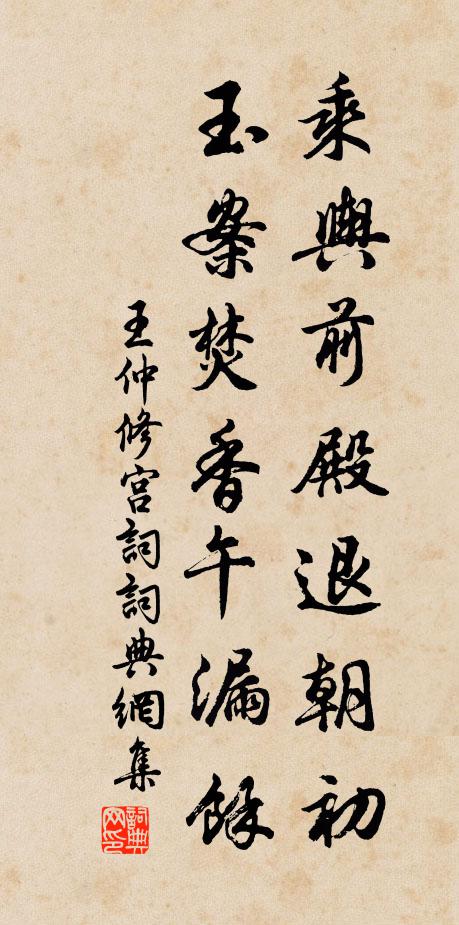 乘輿前殿退朝初
玉案焚香午漏餘
王仲修宫詞詞典網集
詞典网印